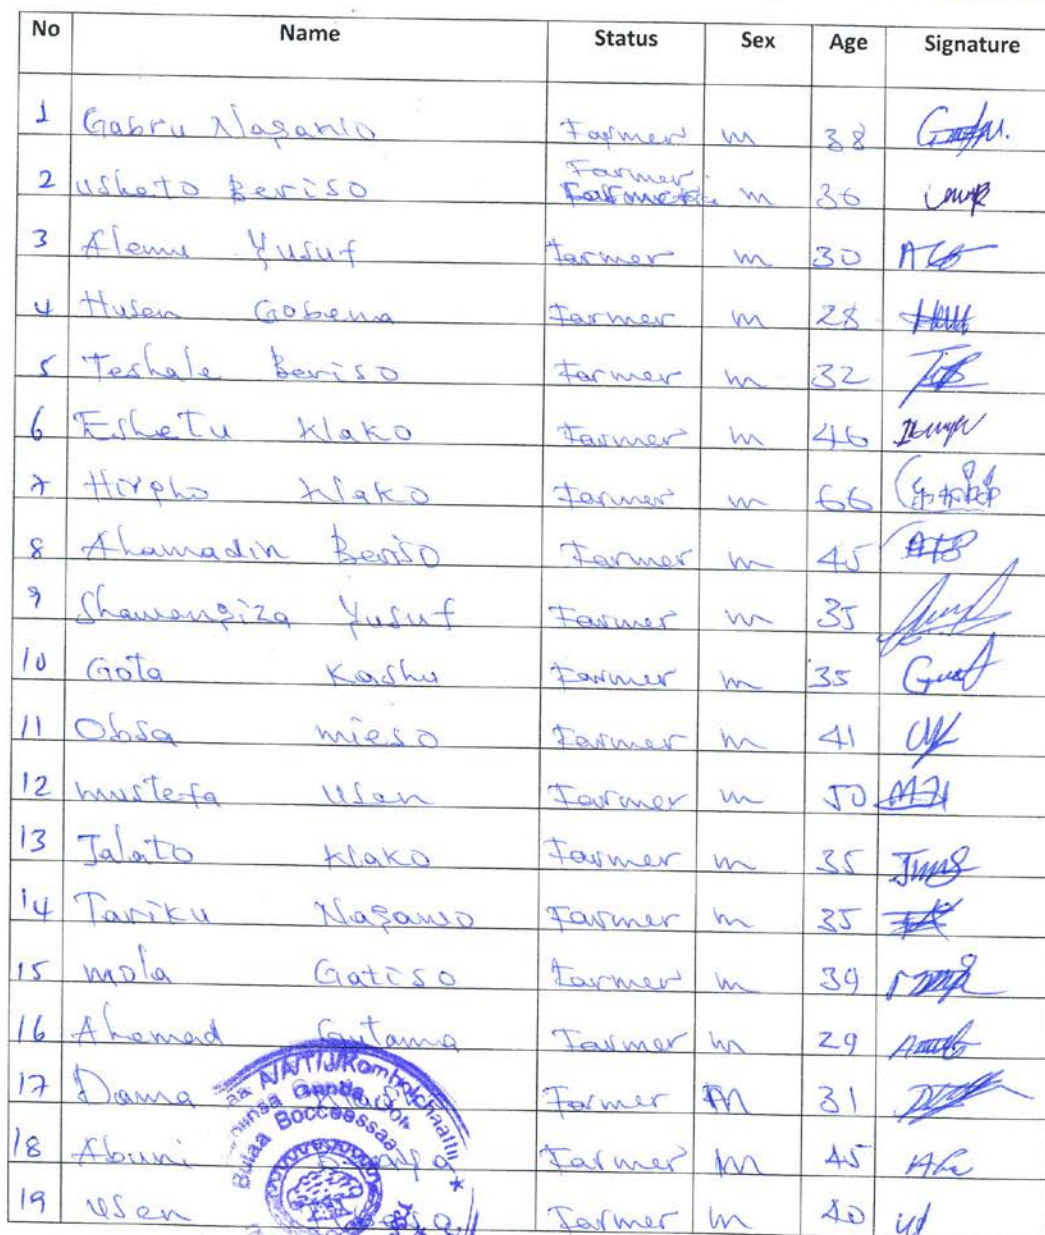 No Name Status Sex Age Signature
1 Gabru Naganio Farmer m 38
2 usheto Beriso Farmer m 36
3 Alemu Yusuf Farmer m 30
4 Husen Gobena Farmer m 28
5 Teshale Beriso Farmer m 32
6 Eshetu Klako Farmer m 46
7 Hirpho Klako Farmer m 66
8 Ahamadin Beriso Farmer m 45
9 Shawangiza Yusuf Farmer m 35
10 Gota Kashu Farmer m 35
11 Obsa mieso Farmer m 41
12 mustefa Usen Farmer m 50
13 Jalato Klako Farmer m 35
14 Tariku Naganio Farmer m 35
15 mola Gatiso Farmer m 39
16 Ahemad Farmer m 29
17 Dama Farmer M 31
18 Abuni Farmer M 45
19 Usen Farmer m 40
Bulaa Bocceessaa